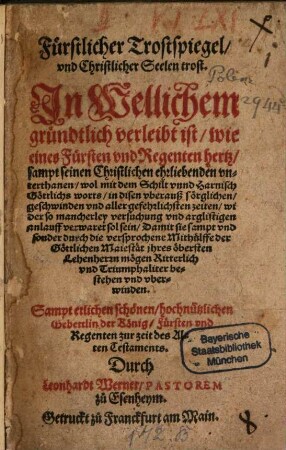 Fürstlicher Trostspiegel/
vnd Christlicher Seelen trost.
Polem.
2945
In Wellichem
gründtlich verleibt ist/ wie
eines Fürsten vnd Regenten hertz/
sampt seinen Christlichen ehrliebenden vn-
terthanen/ wol mit dem Schilt vnnd Harnisch
Göttlichs worts/ in disen vberauß sörglichen/
geschwinden vnd aller gefehrlichsten zeiten/ wi
der so mancherley versuchung vnd arglistigen
anlauff verwaret sol sein/ Damit sie sampt vnd
sonder durch die versprochene Mithülffe der
Göttlichen Maiestät ihres öbersten
Lehenherrn mögen Ritterlich
vnd Triumphaliter be-
stehen vnd vber-
winden.
Sampt etlichen schönen/ hochnützlichen
Gebettlin der König/ Fürsten vnd
Regenten zur zeit des Al-
ten Testaments.
Bayerische
Staatsbibliothek
München
Durch
Leonhardt Werner/ PASTOREM
zu Esenheym.
Getruckt zu Franckfurt am Main.